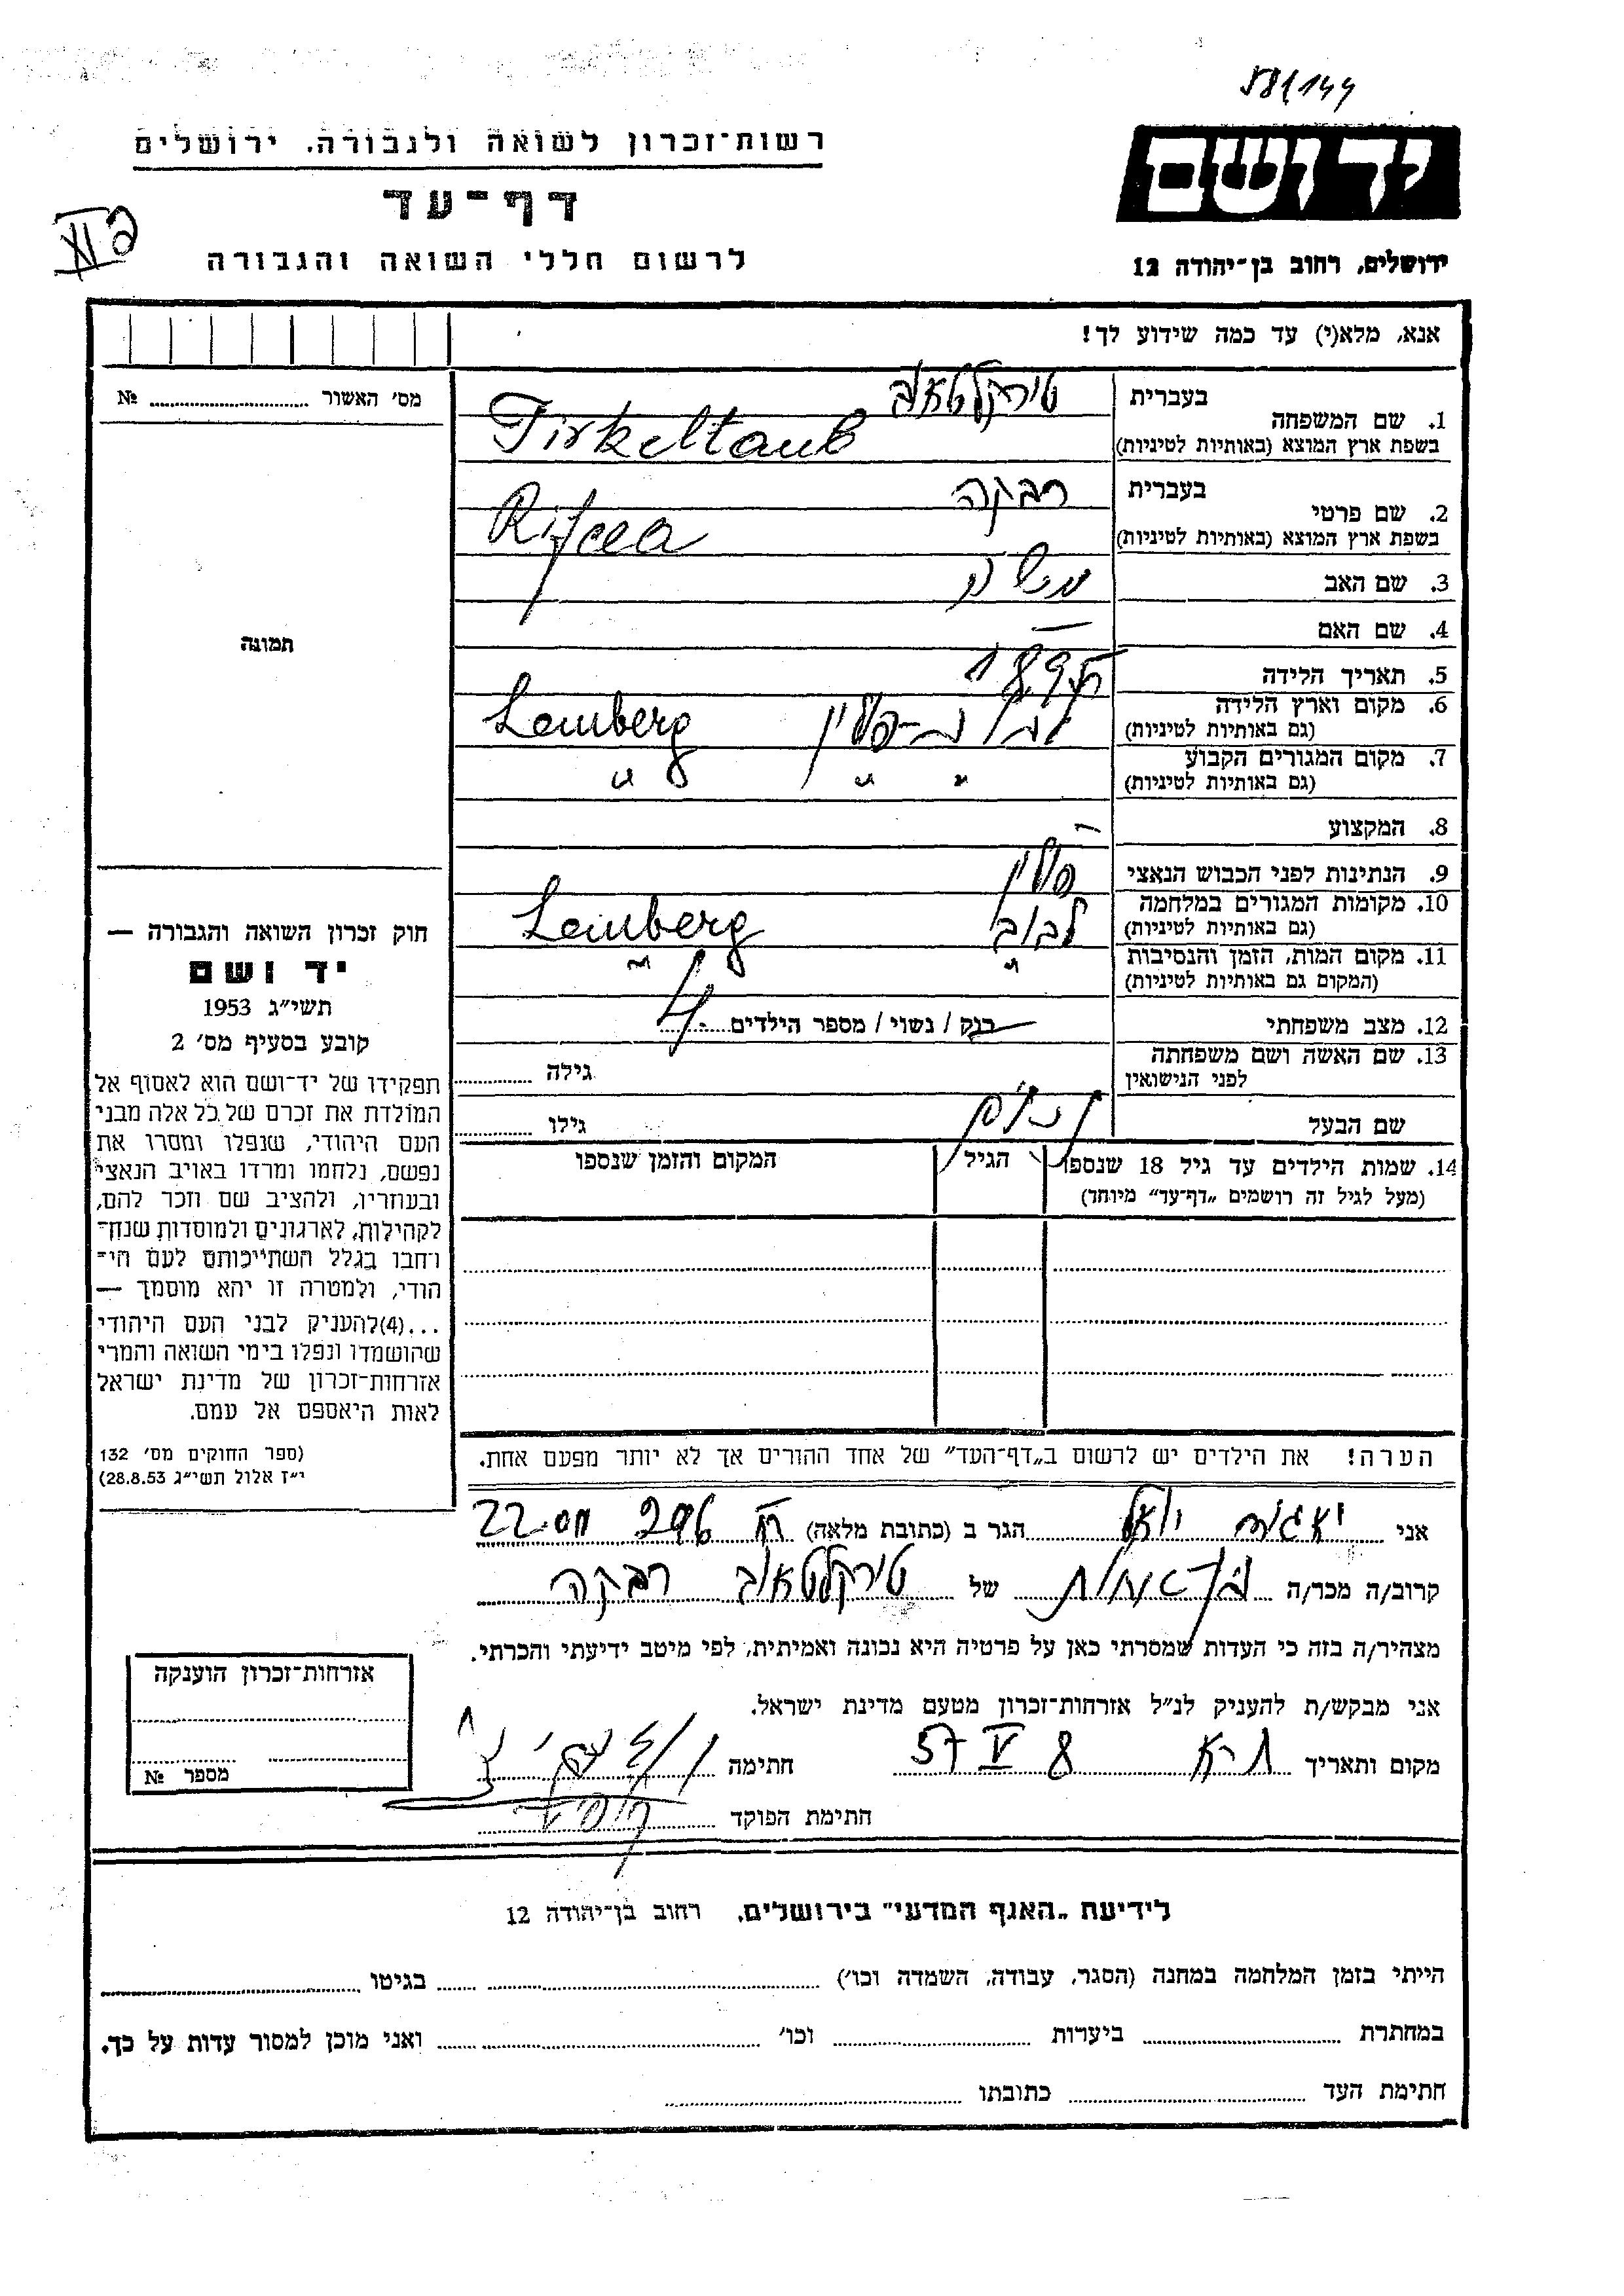 58/144
רשות־זכרון לשואה ולגבורה, ירושלים
יד ושם
דף־עד
לרשום חללי השואה והגבורה
ירושלים, רחוב בן־יהודה 12
אנא, מלא(י) עד כמה שידוע לך!
מס׳ האשור № 
בעברית טירקלטאוב
1. שם המשפחה
בשפת ארץ המוצא (באותיות לטיניות) Tirkeltaub
בעברית רבקה
2. שם פרטי
בשפת ארץ המוצא (באותיות לטיניות) Rifcea
3. שם האב
תמונה
4. שם האם —
5. תאריך הלידה 1895
6. מקום וארץ הלידה
(גם באותיות לטיניות) פולין Lemberg
7. מקום המגורים הקבוע
(גם באותיות לטיניות) " " "
8. המקצוע —
9. הנתינות לפני הכבוש הנאצי פולין
10. מקומות המגורים במלחמה
(גם באותיות לטיניות) לבוב Lemberg
11. מקום המות, הזמן והנסיבות
(המקום גם באותיות לטיניות) " "
12. מצב משפחתי רנק / נשוי / מספר הילדים 4
13. שם האשה ושם משפחתה
לפני הנישואין
גילה
שם הבעל
גילו
14. שמות הילדים עד גיל 18 שנספו
(מעל לגיל זה רושמים „דף־עד״ מיוחד)
הגיל
המקום והזמן שנספו
חוק זכרון השואה והגבורה —
יד ושם
תשי״ג 1953
קובע בסעיף מס׳ 2
תפקידו של יד־ושם הוא לאסוף אל
המולדת את זכרם של כל אלה מבני
העם היהודי, שנפלו ומסרו את
נפשם, נלחמו ומרדו באויב הנאצי
ובעוזריו, ולהציב שם וזכר להם,
לקהילות, לארגונים ולמוסדות שנח־
רחבו בגלל השתייכותם לעם הי־
הודי, ולמטרה זו יהא מוסמך —
...(4)להעניק לבני העם היהודי
שהושמדו ונפלו בימי השואה והמרי
אזרחות־זכרון של מדינת ישראל
לאות היאספם אל עמם.
(ספר החוקים מס׳ 132
י״ז אלול תשי״ג 28.8.53)
הערה! את הילדים יש לרשום ב„דף־העד״ של אחד ההורים אך לא יותר מפעם אחת.
אני הגר ב (כתובת מלאה)
קרוב/ה מכר/ה של טירקלטאוב רבקה
מצהיר/ה בזה כי העדות שמסרתי כאן על פרטיה היא נכונה ואמיתית, לפי מיטב ידיעתי והכרתי.
אני מבקש/ת להעניק לנ״ל אזרחות־זכרון מטעם מדינת ישראל.
מקום ותאריך 8 V 57 חתימה
חתימת הפוקד
אזרחות־זכרון הוענקה
מספר №
לידיעת „האגף המדעי״ בירושלים, רחוב בן־יהודה 12
הייתי בזמן המלחמה במחנה (הסגר, עבודה, השמדה וכו׳) בגיטו
במחתרת ביערות וכו׳ ואני מוכן למסור עדות על כך.
חתימת העד כתובתו